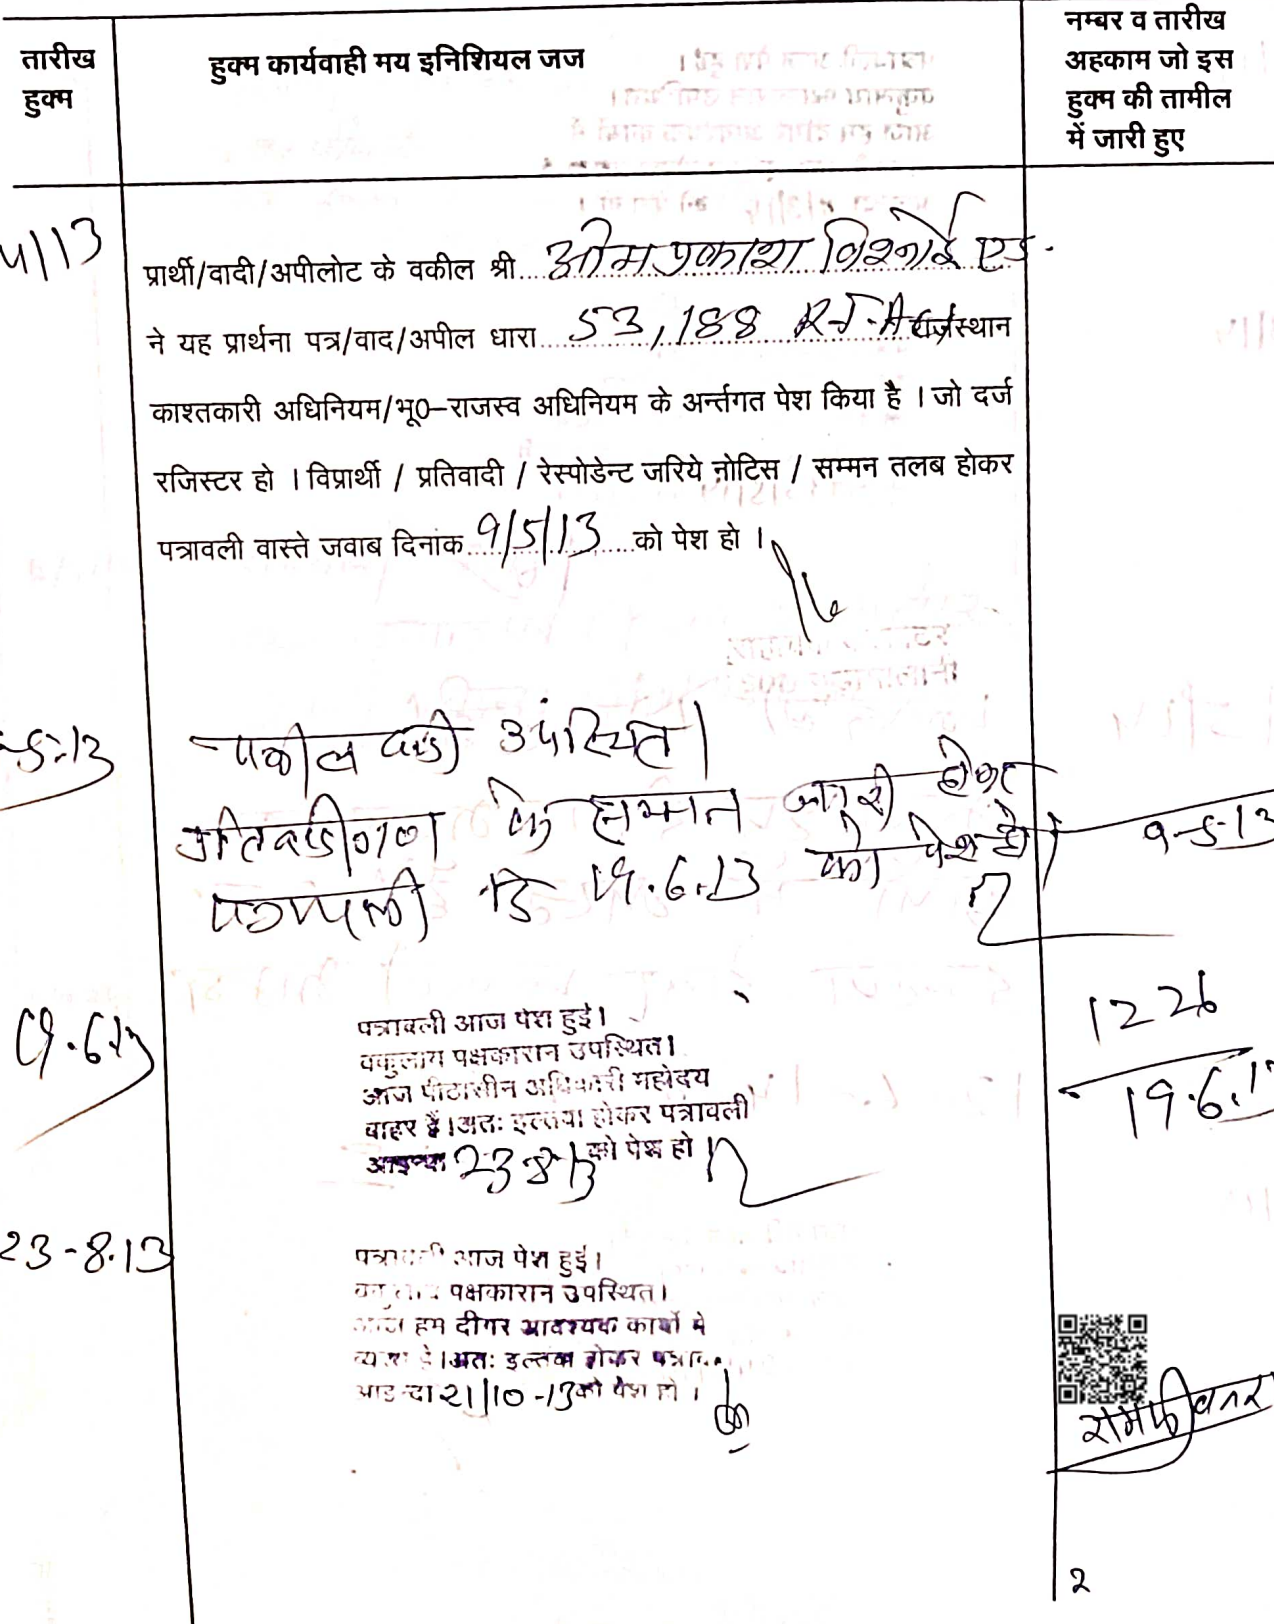 तारीख
हुक्म
हुक्म कार्यवाही मय इनिशियल जज
नम्बर व तारीख
अहकाम जो इस
हुक्म की तामील
में जारी हुए
4/13
प्रार्थी/वादी/अपीलोट के वकील श्री ओमप्रकाश विश्नोई एड.
ने यह प्रार्थना पत्र/वाद/अपील धारा 53,188 R.T.Act राजस्थान
काश्तकारी अधिनियम/भू0-राजस्व अधिनियम के अर्न्तगत पेश किया है । जो दर्ज
रजिस्टर हो । विप्रार्थी / प्रतिवादी / रेस्पोडेन्ट जरिये नोटिस / सम्मन तलब होकर
पत्रावली वास्ते जवाब दिनांक 9/5/13 को पेश हो ।
-5-13
वकील वादी उपस्थित।
प्रतिवादीगण के सम्मन जारी होकर
पत्रावली दि 19.6.13 को पेश हो।
9-5-13
19.6.13
पत्रावली आज पेश हुई।
वकुलाय पक्षकारान उपस्थित।
आज पीठासीन अधिकारी महोदय
बाहर हैं।अतः इल्तवा होकर पत्रावली
आइन्दा 23-8-13 को पेश हो
1226
19.6.1
23-8.13
पत्रावली आज पेश हुई।
वकुलाय पक्षकारान उपस्थित।
आज हम दीगर आवश्यक कार्यो मे
व्यस्त है।अतः इल्तवा होकर पत्राव
आइन्दा 21/10-13 को पेश हो ।
2